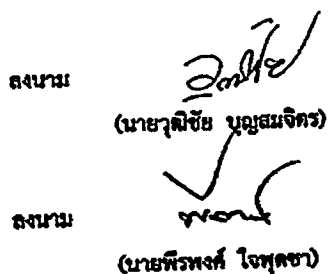 ลงนาม
(นายวุฒิชัย บุญสมจิตร)
ลงนาม
(นายพีรพงศ์ ใจพุดซา)